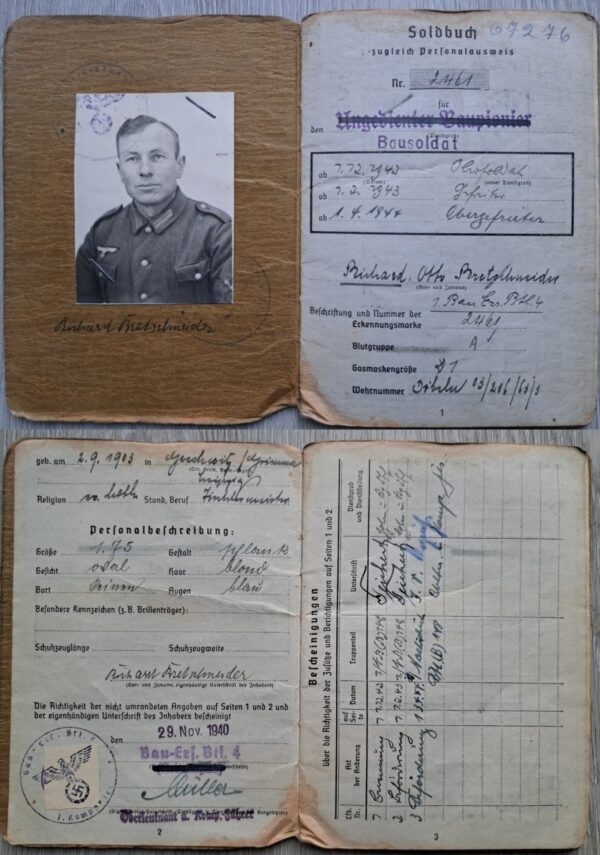 Richard Bretschneider
Soldbuch 67276
zugleich Personalausweis
Nr. 2461
für
den Ungedienter Baupionier
(Dienstgrad)
Bausoldat
ab 7.12.1942 Obersoldat
(Datum) (neuer Dienstgrad)
ab 7.2.1943 Gefreiter
ab 1.4.1944 Obergefreiter
Richard Otto Bretschneider
(Vor- und Zuname)
Beschriftung und Nummer der 1. Bau Ers. Btl. 4
Erkennungsmarke 2461
Blutgruppe A
Gasmaskengröße 1
Wehrnummer 03/206/63/3
1
geb. am 2.9.1903 in /Grimma
Leipzig
Religion ev. luth. Stand, Beruf Tischlermeister
Personalbeschreibung:
Größe 1.75 Gestalt schlank
Gesicht oval Haar blond
Bart keinen Augen blau
Besondere Kennzeichen (z.B. Brillenträger):
Schuhzeuglänge Schuhzeugweite
Richard Bretschneider
(Vor- und Zuname, eigenhändige Unterschrift des Inhabers)
Die Richtigkeit der nicht umrandeten Angaben auf Seiten 1 und 2
und der eigenhändigen Unterschrift des Inhabers bescheinigt
den 29. Nov. 1940
Bau-Ers. Btl. 4
Müller
Oberleutnant u. Komp.-Führer
Bau-Ers. Btl. 4
1. Komp.
2
Bescheinigungen
über die Richtigkeit der Zusätze und Berichtigungen auf Seiten 1 und 2
Lfd. Nr. Art der Änderung auf Seite Datum Truppenteil Unterschrift Dienstgrad und Dienststellung
1 Ernennung 1 7.12.42
2 Beförderung 1 7.2.43
3 Beförderung 1
3